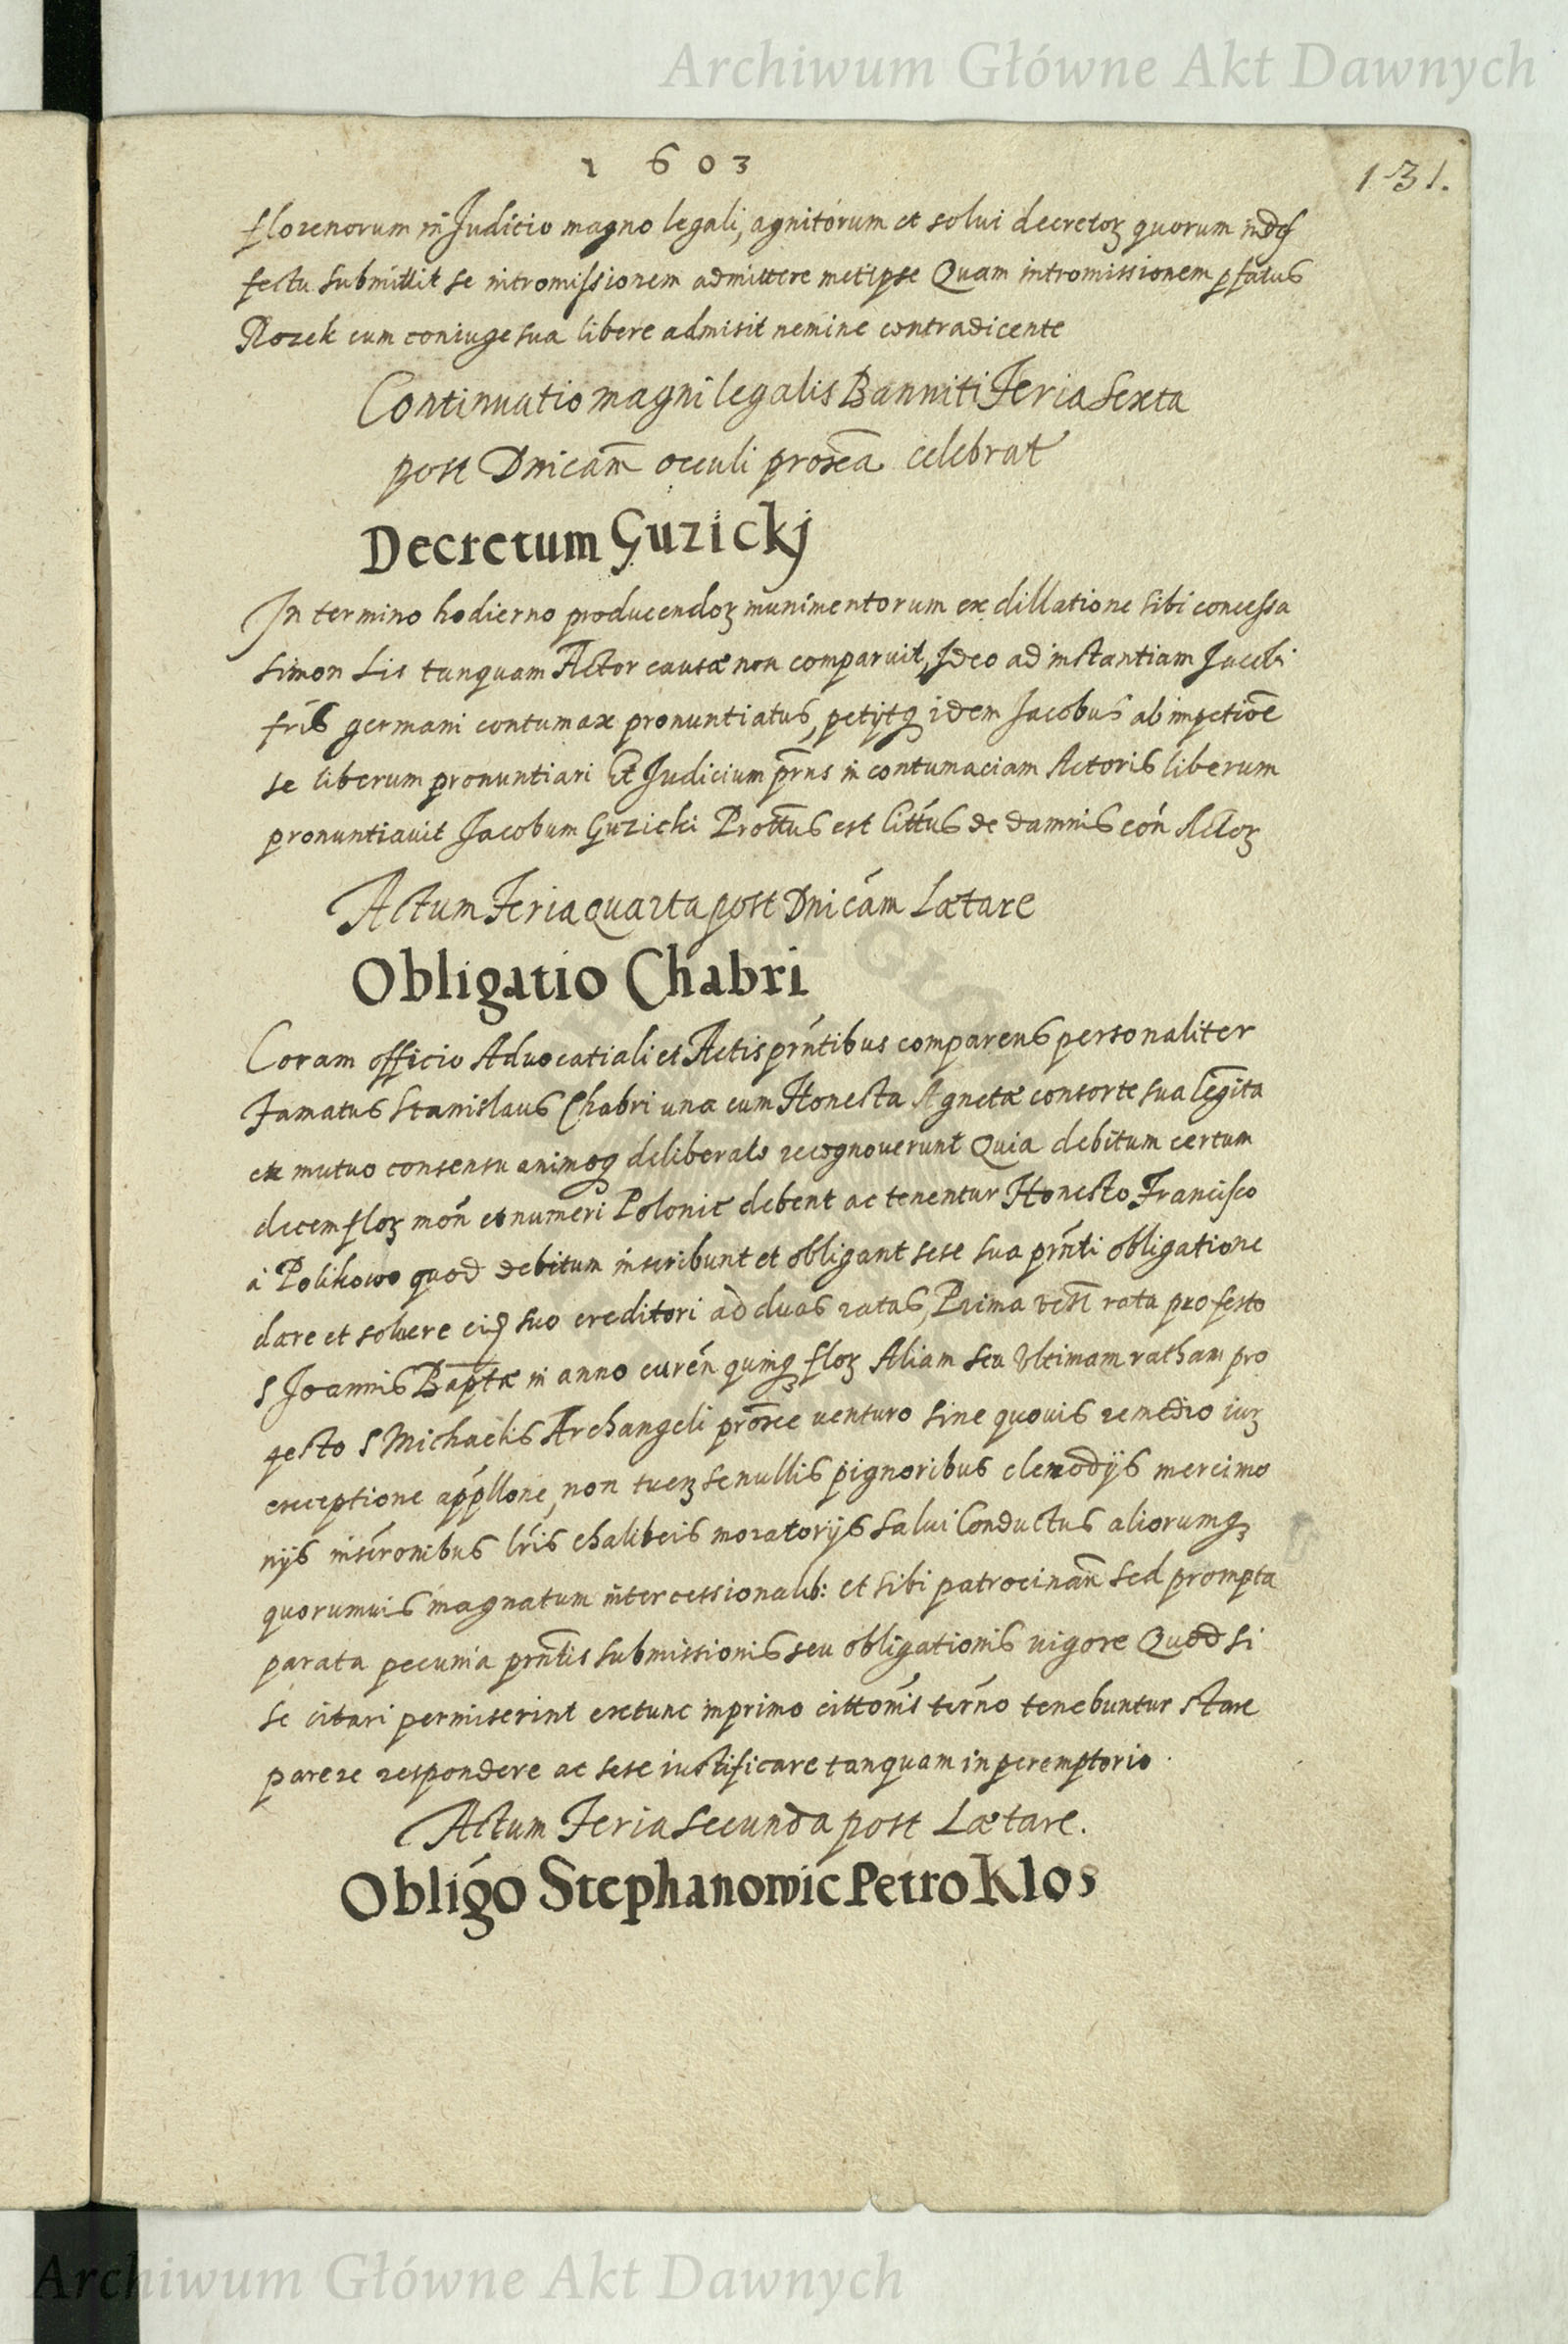 Archiwum Główne Akt Dawnych
1603
131.
florenorum in Juditio magno legali, agnitorum et solui decretoꝝ quorum in def
fectu submittit se intromissionem admittere metipse Quam intromissionem pfatus
Rozek cum coniuge sua libere admisit nemine contradicente
Continuatio magni legalis Banniti Feria Sexta
post Dnicam̄ occuli proxēa celebrat
Decretum Guzickj
In termino hodierno producendoꝝ munimentorum ex dillatione sibi concessa
Simon Lis tanquam Actor causæ non comparuit, Ideo ad instantiam Jacobi
fris germani contumax pronuntiatus, petijtq idem Jacobus ab impetiōe
se liberum pronuntiari Et Judicium prn̄s in contumaciam Actoris liberum
pronuntiauit Jacobum Guzicki Prottūs est littūs de damnis cón Actoꝝ
Actum Feria quarta post Dnicám Lætare
Obligatio Chabri
Coram officio Aduocatiali et Actis prńtibus comparens personaliter
Famatus Stanislaus Chabri una cum Honesta Agnetæ consorte sua legīta
ex mutuo consensu animoq deliberato recognouerunt Quia debitum certum
decem floꝝ moñ et numeri Polonic̄ debent ac tenentur Honesto Francisco
à Polikowo quod debitum inscribunt et obligant sese sua prńti obligatione
dare et soluere eid suo creditori ad duas ratas, Prima rata pro festo
S Joannis Baptæ in anno curén quinqꝫ floꝝ Aliam seu Vltimam ratham pro
festo S Michaelis Archangeli prōxee venturo sine quouis remedio iuꝝ
exceptione appllone, non tueꝝ se nullis pignoribus clenodÿs mercimo
nÿs inscronibus lris chalibeis moratorÿs salui Conductus aliorumqꝫ
quorumuis magnatum intercessionalib: et sibi patrocinañ sed prompta
parata pecunia prntis submissionis seu obligationis uigore Quod si
se citari permiserint extunc in primo cittonis terno tenebuntur stare
parere respondere ac sese iustificare tanquam in peremptorio
Actum Feria secunda post Lætare.
Obligo Stephanowic Petro Klos
Archiwum Główne Akt Dawnych